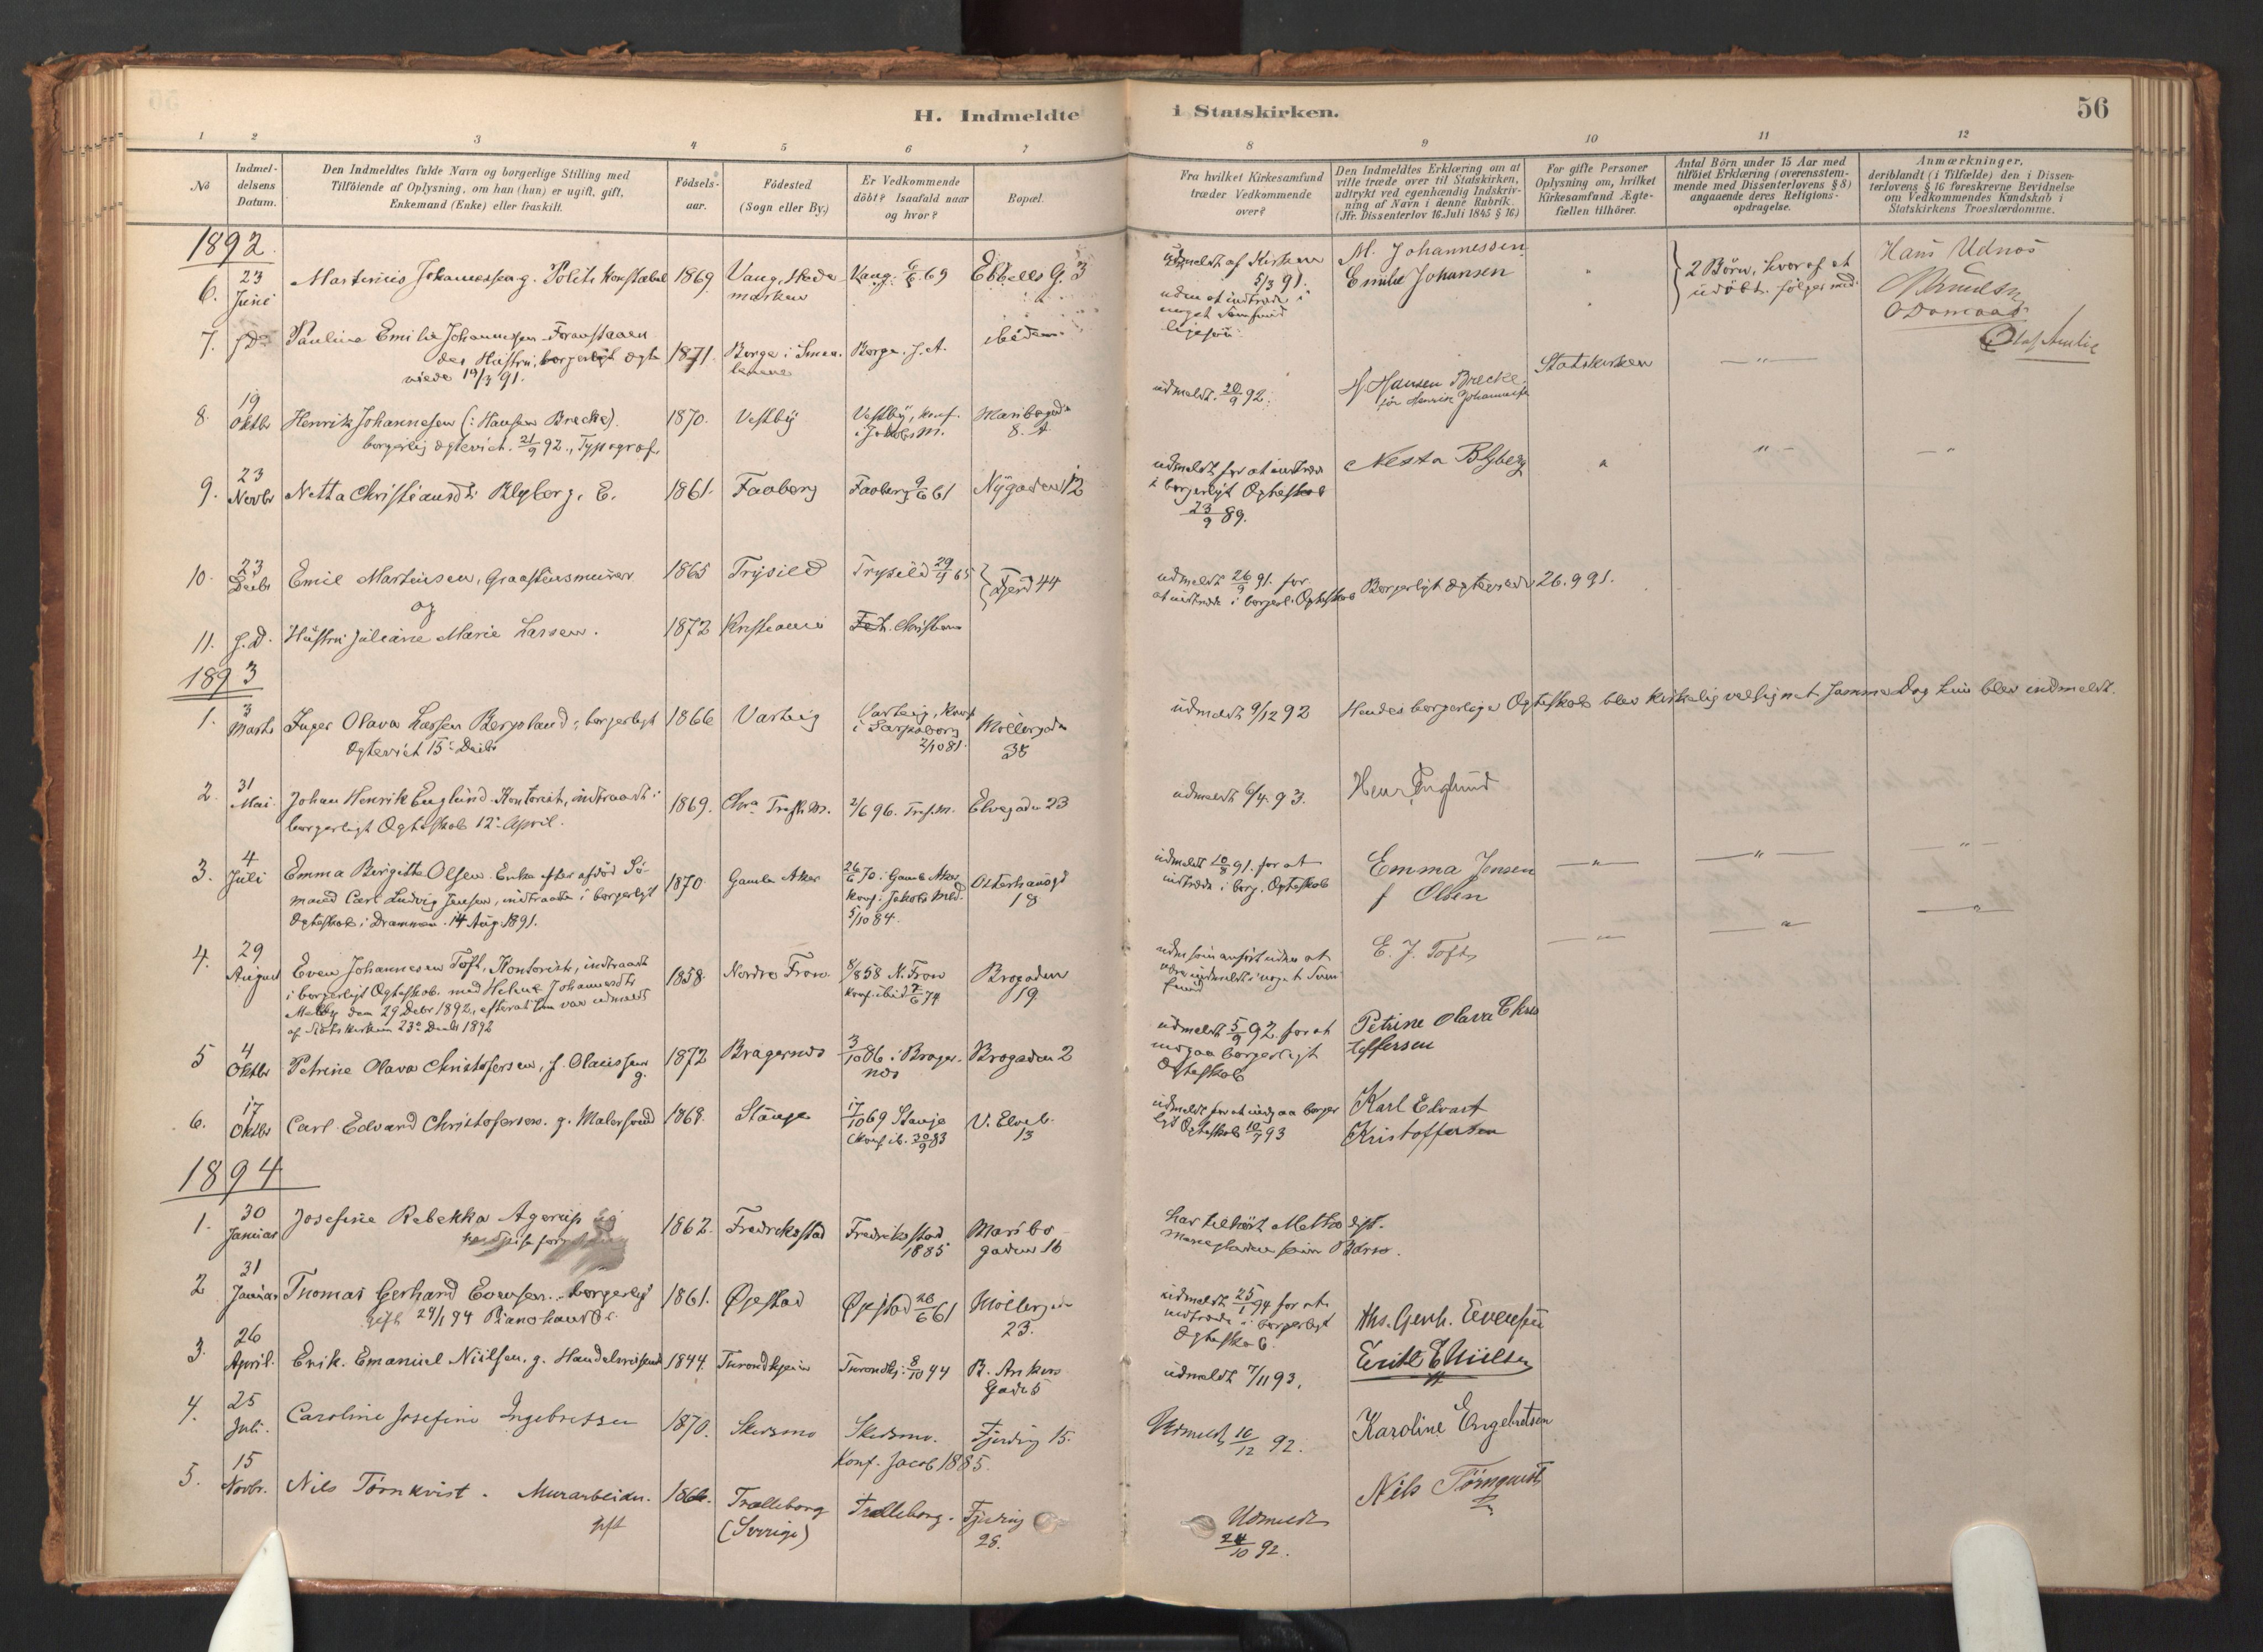 H. Indmeldte i Statskirken.
56
1 2 3 4 5 6 7 8 9 10 11 12
No
Indmel-
delsens
Datum.
Den Indmeldtes fulde Navn og borgerlige Stilling med
Tilföiende af Oplysning, om han (hun) er ugift, gift,
Enkemand (Enke) eller fraskilt.
Födsels-
aar.
Födested
(Sogn eller By.)
Er Vedkommende
döbt? Isaafald naar
og hvor?
Bopæl.
Fra hvilket Kirkesamfund
træder Vedkommende
over?
Den Indmeldtes Erklæring om at
ville træde over til Statskirken,
udtrykt ved egenhændig Indskriv-
ning af Navn i denne Rubrik.
(Jfr. Dissenterlov 16. Juli 1845 § 16)
For gifte Personer
Oplysning om, hvilket
Kirkesamfund Ægte-
fællen tilhörer.
Antal Börn under 15 Aar med
tilföiet Erklæring (overensstem-
mende med Dissenterlovens § 8)
angaaende deres Religions-
opdragelse.
Anmærkninger,
deriblandt (i Tilfælde) den i Dissen-
terlovens § 16 foreskrevne Bevidnelse
om Vedkommendes Kundskab i
Statskirkens Troeslærdomme.
1892
6. 23 Juni
Martinius Johannessen g. Politi Konstabel
1869
Vang, Hede-
marken
Vang. 69
Ebbells G. 3
udmeldt af Kirken
5/3 91.
uden at indtræde i
noget Samfund
ligesaa
M. Johannessen
Emilie Johansen
2 Börn, hvoraf et
udöbt. følger med
Hans Udnæs
Olaf Amlie
7. s. D.
Pauline Emilie Johannessen Foranstaaen-
des Hustru, borgerligt ægte-
viede 19/3 91.
1871
Borge i Smaa-
lenene
Borge. s. A.
ibidem
8. 19 Oktbr
Henrik Johannesen (: Hansen Brecke).
borgerlig ægteviet. 21/9 92., Typograf.
1870.
Vestby
Vestby, konf.
i Jakobs M.
Maribogaden
8. A
udmeldt. 20/9 92.
H. Hansen Brecke
för Henrik Johannesen
Statskirken
9. 23 Novbr
Netta Christiansdt. Blyberg. E.
1861.
Faaberg
Faaberg 9/6 61
Nygaden 12
udmeldt for at indtræde
i borgerligt Ægteskab
23/9 89.
Nesta Blyberg
10. 23 Decbr
Emil Martinsen, Graastensmurer
og
1865
Trysild
Trysild 29/4 65
Fjerd 44
udmeldt 26/9 91. for
at indtræde i borgerl. Ægteskab
Borgerligt Ægteviede 26.9 91.
11. s. D.
Hustru Juliane Marie Larsen.
1872
Kristiania
1893
1. 3 Marts
Inger Olava Larsen Bergoland, borgerligt
Ægteviet 15de Decbr
1866
Varteig
Varteig, Konf
i Sarpsborg
2/10 81.
Möllergaden
35
udmeldt 9/12 92
Hendes borgerlige Ægteskab blev kirkelig velsignet samme Dag hun blev indmeldt.
2. 31 Mai
Johan Henrik Englund. Kontorist, indtraadt i
borgerligt Ægteskab 12te April.
1869.
Chra Trefk. M.
2/6 96. Tref. M.
Elvegaden 23
udmeldt 6/4. 93.
Henr. Englund
3. 4 Juli
Emma Birgitte Olsen. Enke efter afdöd Sö-
mand Carl Ludvig Jensen, indtraadte i borgerligt
Ægteskab i Drammen. 14 Aug. 1891.
1870.
Gamle Aker
26/6 70. i Gamle Aker
konf. i Jakobs Mhd.
5/10 84.
Osterhausgd
18
udmeldt 10/8 91. for at
indtræde i borg. Ægteskab
Emma Jensen
f Olsen
4. 29 August
Even Johannesen Toft, Kontorist, indtraadt
i borgerligt Ægteskab. med Helene Johannesdtr
Melby den 29 Debr 1892, efterat hun var udmeldt
af Statskirken 23de Decbr 1892
1858.
Nordre Fron
8/8 58 N. Fron
Konf. ibid 7/6 74
Brogaden
19
udm. som anført uden at
være indmeldt i noget Sam-
fund
E. J. Toft
5 4 Oktbr
Petrine Olava Christofersen, f. Olaussen
g.
1872
Bragernæs
3/10 86 i Brager-
næs
Brogaden 2
udmeldt 5/9 92. for at
indgaa borgerligt
Ægteskab
Petrine Olava Chris
toffersen
6. 17 Oktbr
Carl Edvard Christofersen. g. Malersvend
1869.
Stange
17/10 69 Stange
Konf ib. 30/9 83
V. Elveb.
13
udmeldt for at indgaa borger-
ligt Ægteskab 10/7 93
Karl Edvart
Kristoffersen
1894
1. 30 Januar
Josefine Rebekka Agerup
1862.
Fredriksstad
Fredriksstad
1885
Maribo-
gaden 16
har tilhört Methodist-
menigheden som Barn.
2 31 Januar
Thomas Gerhard Evensen. borgerligt
gift 29/1 94 Pianohandler.
1861.
Øjestad
Øjestad 26/6 61
Möllergaden
23.
udmeldt 25/1 94 for at
indtræde i borgerligt
Ægteskab.
Ths. Gerh. Evensen
3. 26 April.
Erik. Emanuel Niilsen, g. Handelsreisende
1844.
Trondhjem
Trondhj. 8/10 44
B. Ankers
Gade 5
udmeldt 7/11 93.
Erik E Niilsen
4. 25 Juli.
Caroline Josefine Ingebretsen
1870.
Skedsmo
Skedsmo.
Konf. Jacob 1885.
Fjerding 15.
Udmeldt 16/12 92.
Karoline Engebretsen
5. 15 Novbr.
Nils Törnkvist. Murarbeider.
gift
1866.
Trælleborg
(Sverige)
Trælleborg.
Fjerding
28.
Udmeldt
24/10 92.
Nils Törnquist